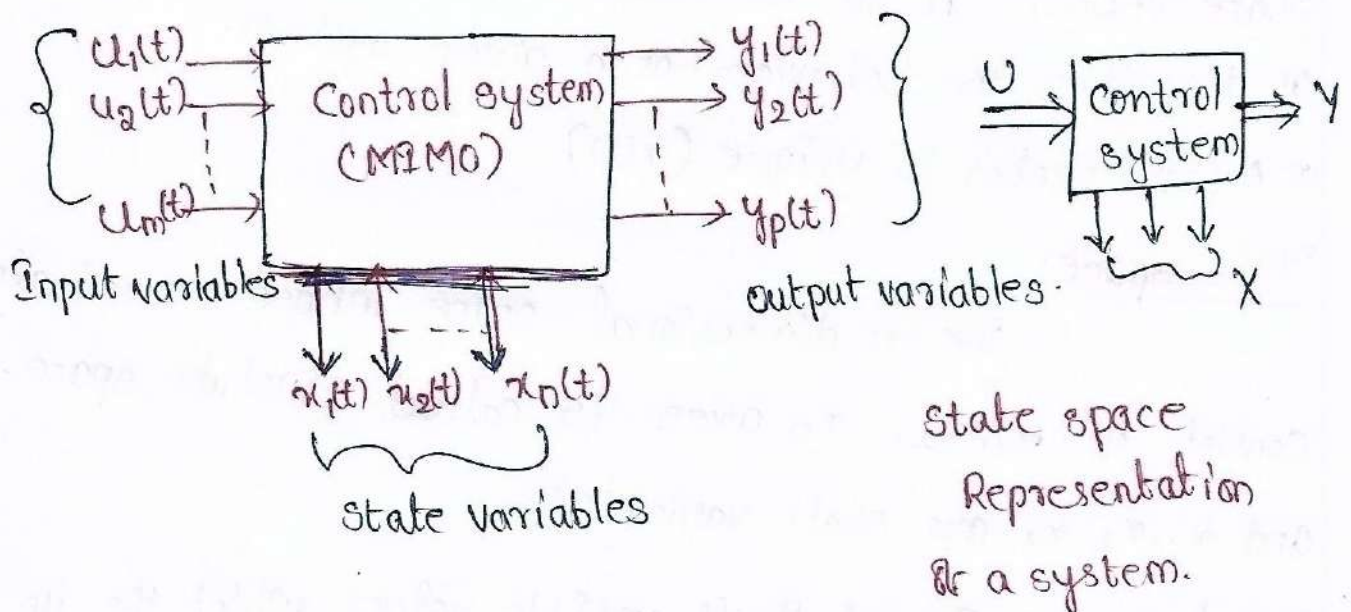 u₁(t)
u₂(t)
uₘ(t)
Control system
(MIMO)
y₁(t)
y₂(t)
yₚ(t)
Input variables
output variables.
x₁(t) x₂(t) xₙ(t)
State variables
U
control
system
Y
X
State space
Representation
a system.